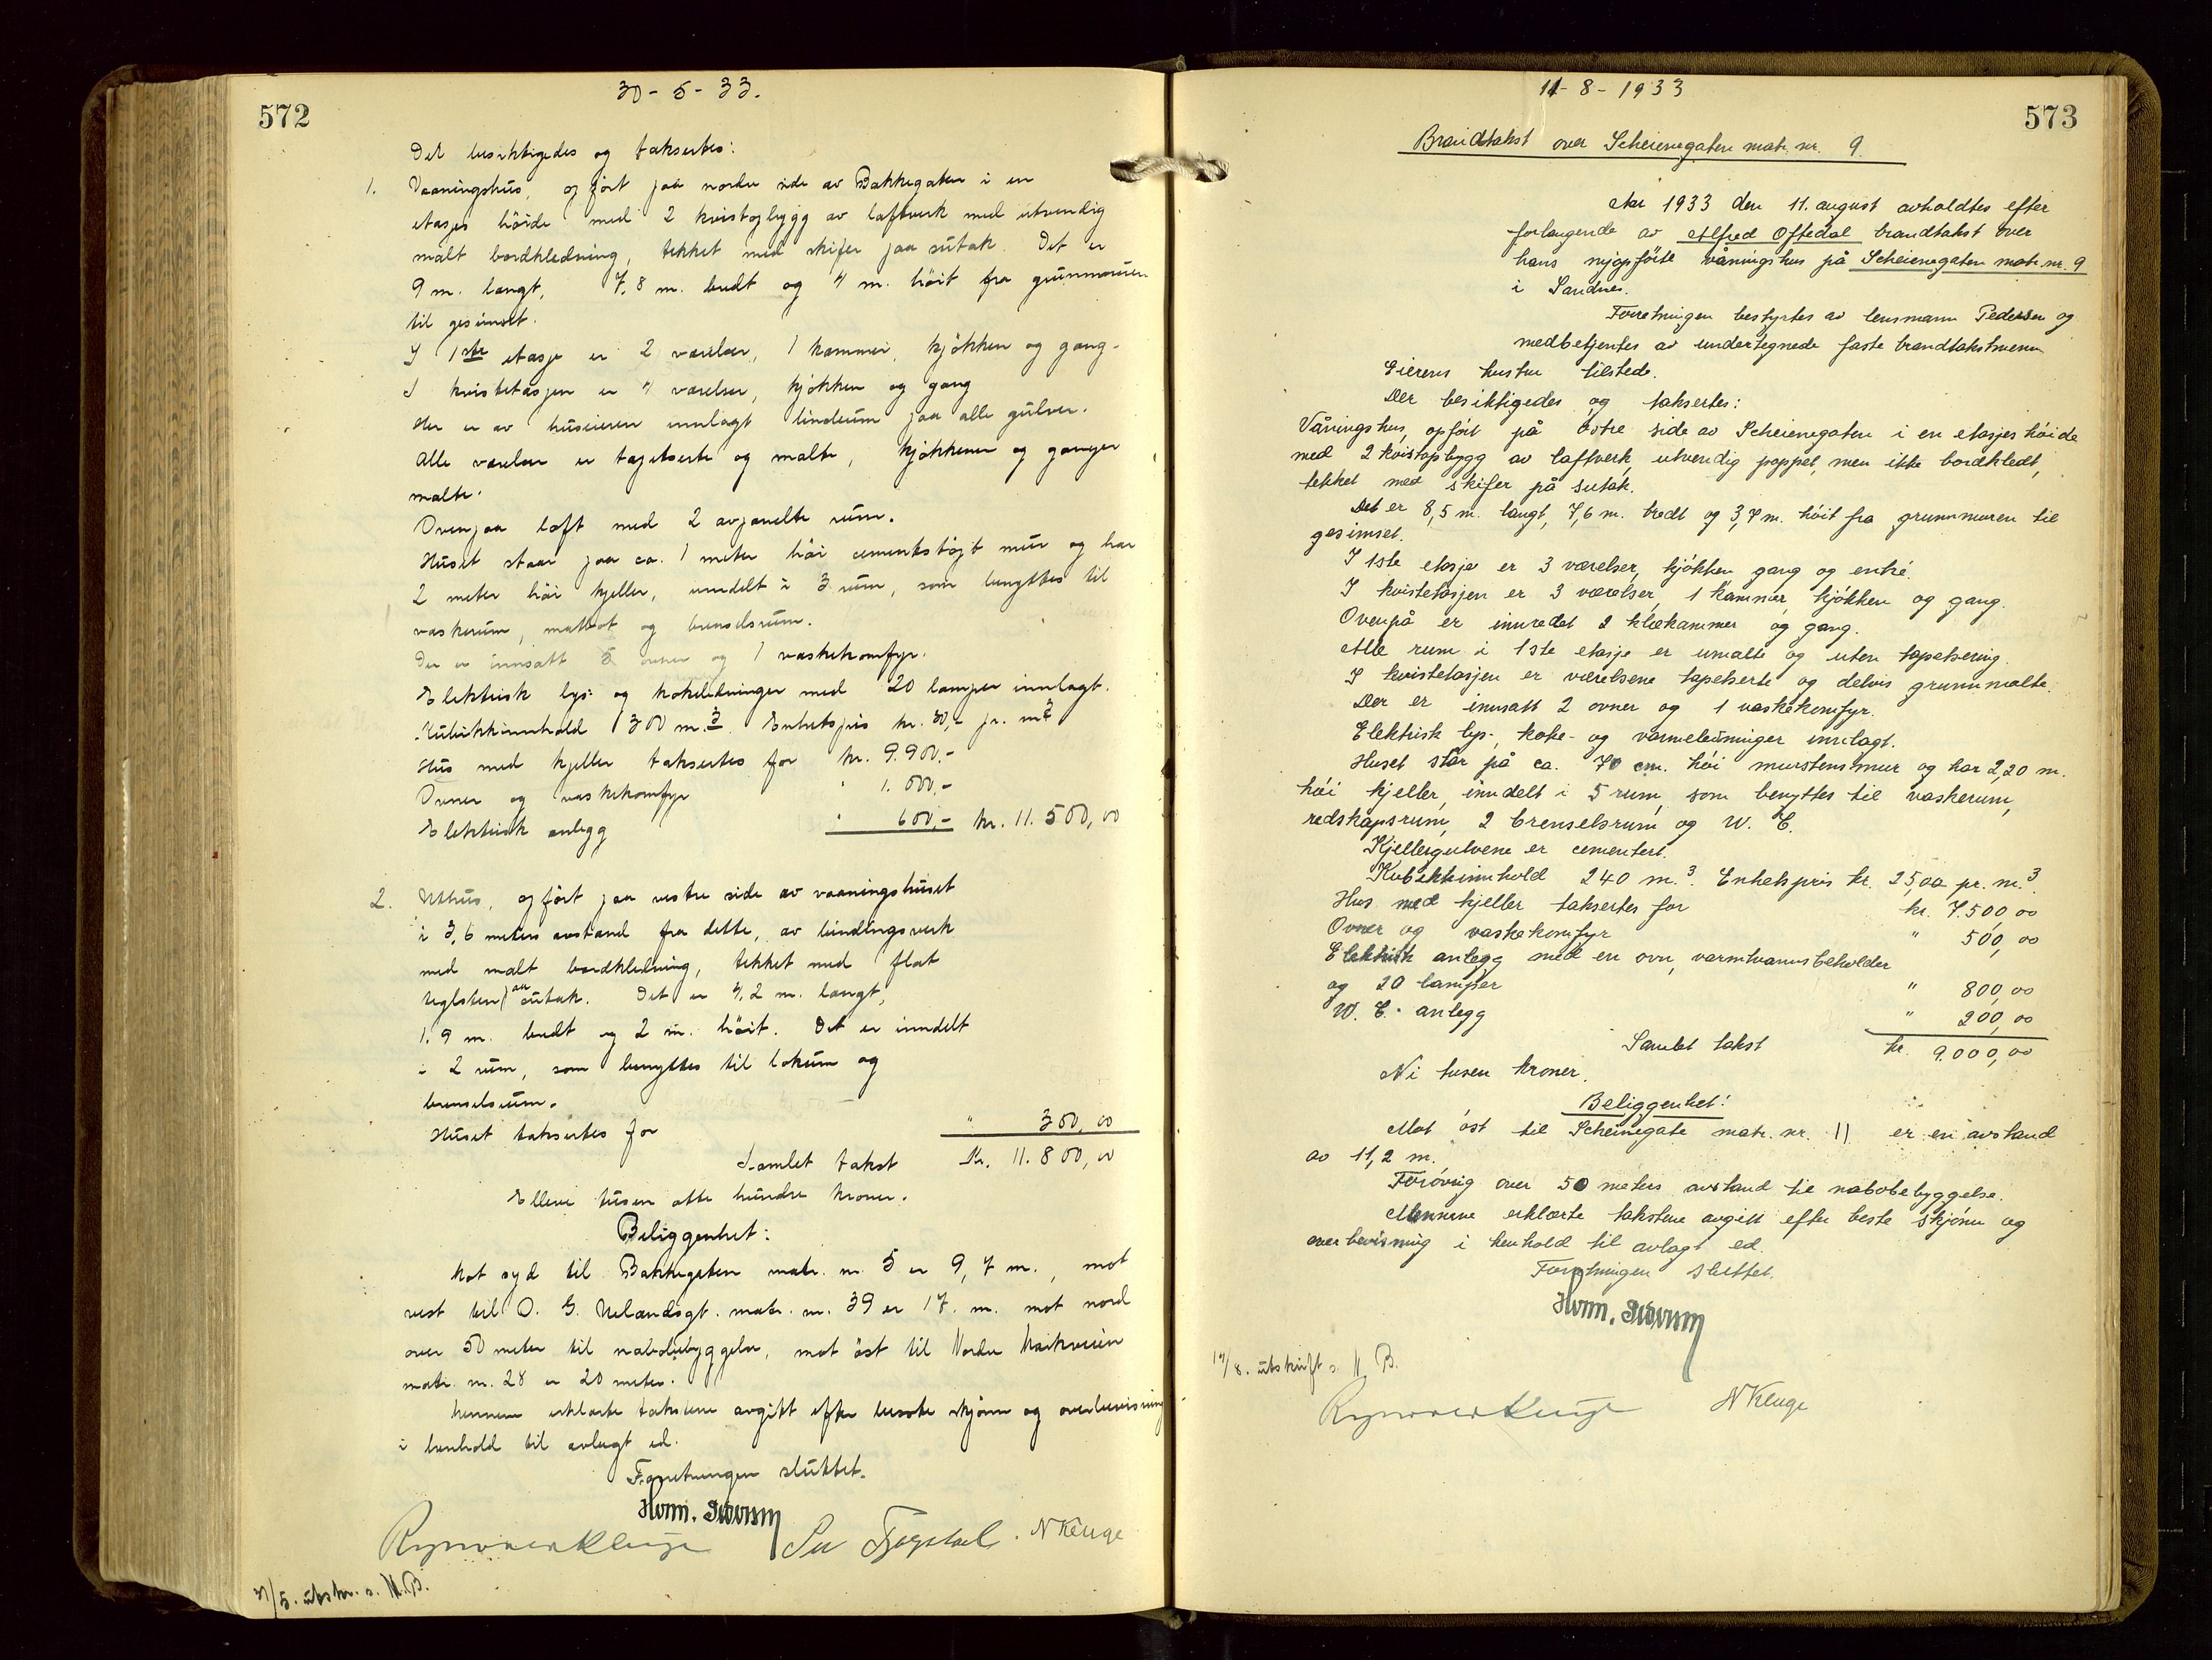 572
30-5-33.
Det besiktigedes og taksertes:
1. Vaaningshus, opført paa nordre side av Bakkegaten i en
etasjes høide med 2 kvistopbygg av laftverk med utvendig
malt bordkledning, tekket med skifer paa sutak. Det er
9 m. langt, 7,8 m. bredt og 4 m. høit fra grunnmuren
til gesimset.
I 1ste etasje er 2 værelser, 1 kammer, kjøkken og gang.
I kvistetasjen er 4 værelser, kjøkken og gang
Her er av huseieren innlagt linoleum paa alle gulver.
Alle værelser er tapetserte og malte, kjøkkener og ganger
malte.
Ovenpaa loft med 2 avpanelte rum.
Huset staar paa ca. 1 meter høi cementstøpt mur og har
2 meter høi kjeller, inndelt i 3 rum, som benyttes til
vaskerum, matbot og brenselsrum.
Der er innsatt 5 ovner og 1 vaskekomfyr.
Elektrisk lys- og kokeledninger med 20 lamper innlagt.
Kubikkinnhold 300 m.3. Enhetspris kr. 30,- pr. m3
Hus med kjeller taksertes for kr. 9.900.-
Ovner og vaskekomfyr " 1.000,-
Elektrisk anlegg " 600,- kr. 11.500,00
2. Uthus, opført paa vestre side av vaaningshuset
i 3,6 meters avstand fra dette, av bindingsverk
med malt bordkledning, tekket med flat
teglsten paa sutak. Det er 4,2 m. langt,
1.9 m. bredt og 2 m. høit. Det er inndelt
i 2 rum, som benyttes til lokum og
brenselsrum.
Huset taksertes for " 300,00
Samlet takst Kr. 11.800,00
Elleve tusen otte hundre kroner.
Beliggenhet:
Mot syd til Bakkegaten matr. nr. 5 er 9,7 m., mot
vest til O. G. Uelandsgt. matr. nr. 39 er 17. m. mot nord
over 50 meter til nabobebyggelse, mot øst til Nordre
matr. nr. 28 er 20 meter.
Mennene erklærte takstene avgitt efter beste skjønn og overbevisning
i henhold til avlagt ed.
Forretningen sluttet.
N Kluge
31/5. utskr. s. M.B.
573
11-8-1933
Brandtakst over Scheiene­gaten matr. nr. 9.
Aar 1933 den 11. august avholdtes efter
forlangende av Alfred Oftedal brandtakst over
hans nyopførte våningshus på Scheienegaten matr. nr. 9
i Sandnes.
Forretningen bestyrtes av lensmann Pedersen og
medbetjentes av undertegnede faste brandtakstmenn
Eierens hustru tilstede.
Der besiktigedes og taksertes:
Våningshus, opført på østre side av Scheienegaten i en etasjes høide
med 2 kvistopbygg av laftverk, utvendig pappet, men ikke bordkledt,
tekket med skifer på sutak.
Det er 8,5 m. langt, 7,6 m. bredt og 3,7 m. høit fra grunnmuren til
gesimset.
I 1ste etasje er 3 værelser, kjøkken gang og entré.
I kvistetasjen er 3 værelser, 1 kammer, kjøkken og gang.
Ovenpå er innredet 2 klækammer og gang.
Alle rum i 1ste etasje er umalte og uten tapetsering.
I kvistetasjen er værelsene tapetserte og delvis grunnmalte.
Der er innsatt 2 ovner og 1 vaskekomfyr.
Elektrisk lys-, koke- og varmeledninger innlagt.
Huset står på ca. 70 cm. høi murstensmur og har 2,20 m.
høi kjeller, inndelt i 5 rum, som benyttes til vaskerum,
redskapsrum, 2 brenselsrum og W. C.
Kjellergulvene er cementert.
Kubikkinnhold 240 m.3. Enhetspris kr. 25,00 pr. m.3.
Hus med kjeller taksertes for kr. 7.500,00
Ovner og vaskekomfyr " 500,00
Elektrisk anlegg med en ovn, varmtvannsbeholder
og 20 lamper " 800,00
W. C. anlegg " 200,00
Samlet takst kr. 9.000,00
Ni tusen kroner.
Beliggenhet:
Mot øst til Scheinegate matr. nr. 11 er en avstand
av 11,2 m.
Forøvrig over 50 meters avstand til nabobebyggelse.
Mennene erklærte takstene avgitt efter beste skjønn og
overbevisning i henhold til avlagt ed.
Forretningen sluttet.
14/8. utskrift s. M. B.
N Kluge